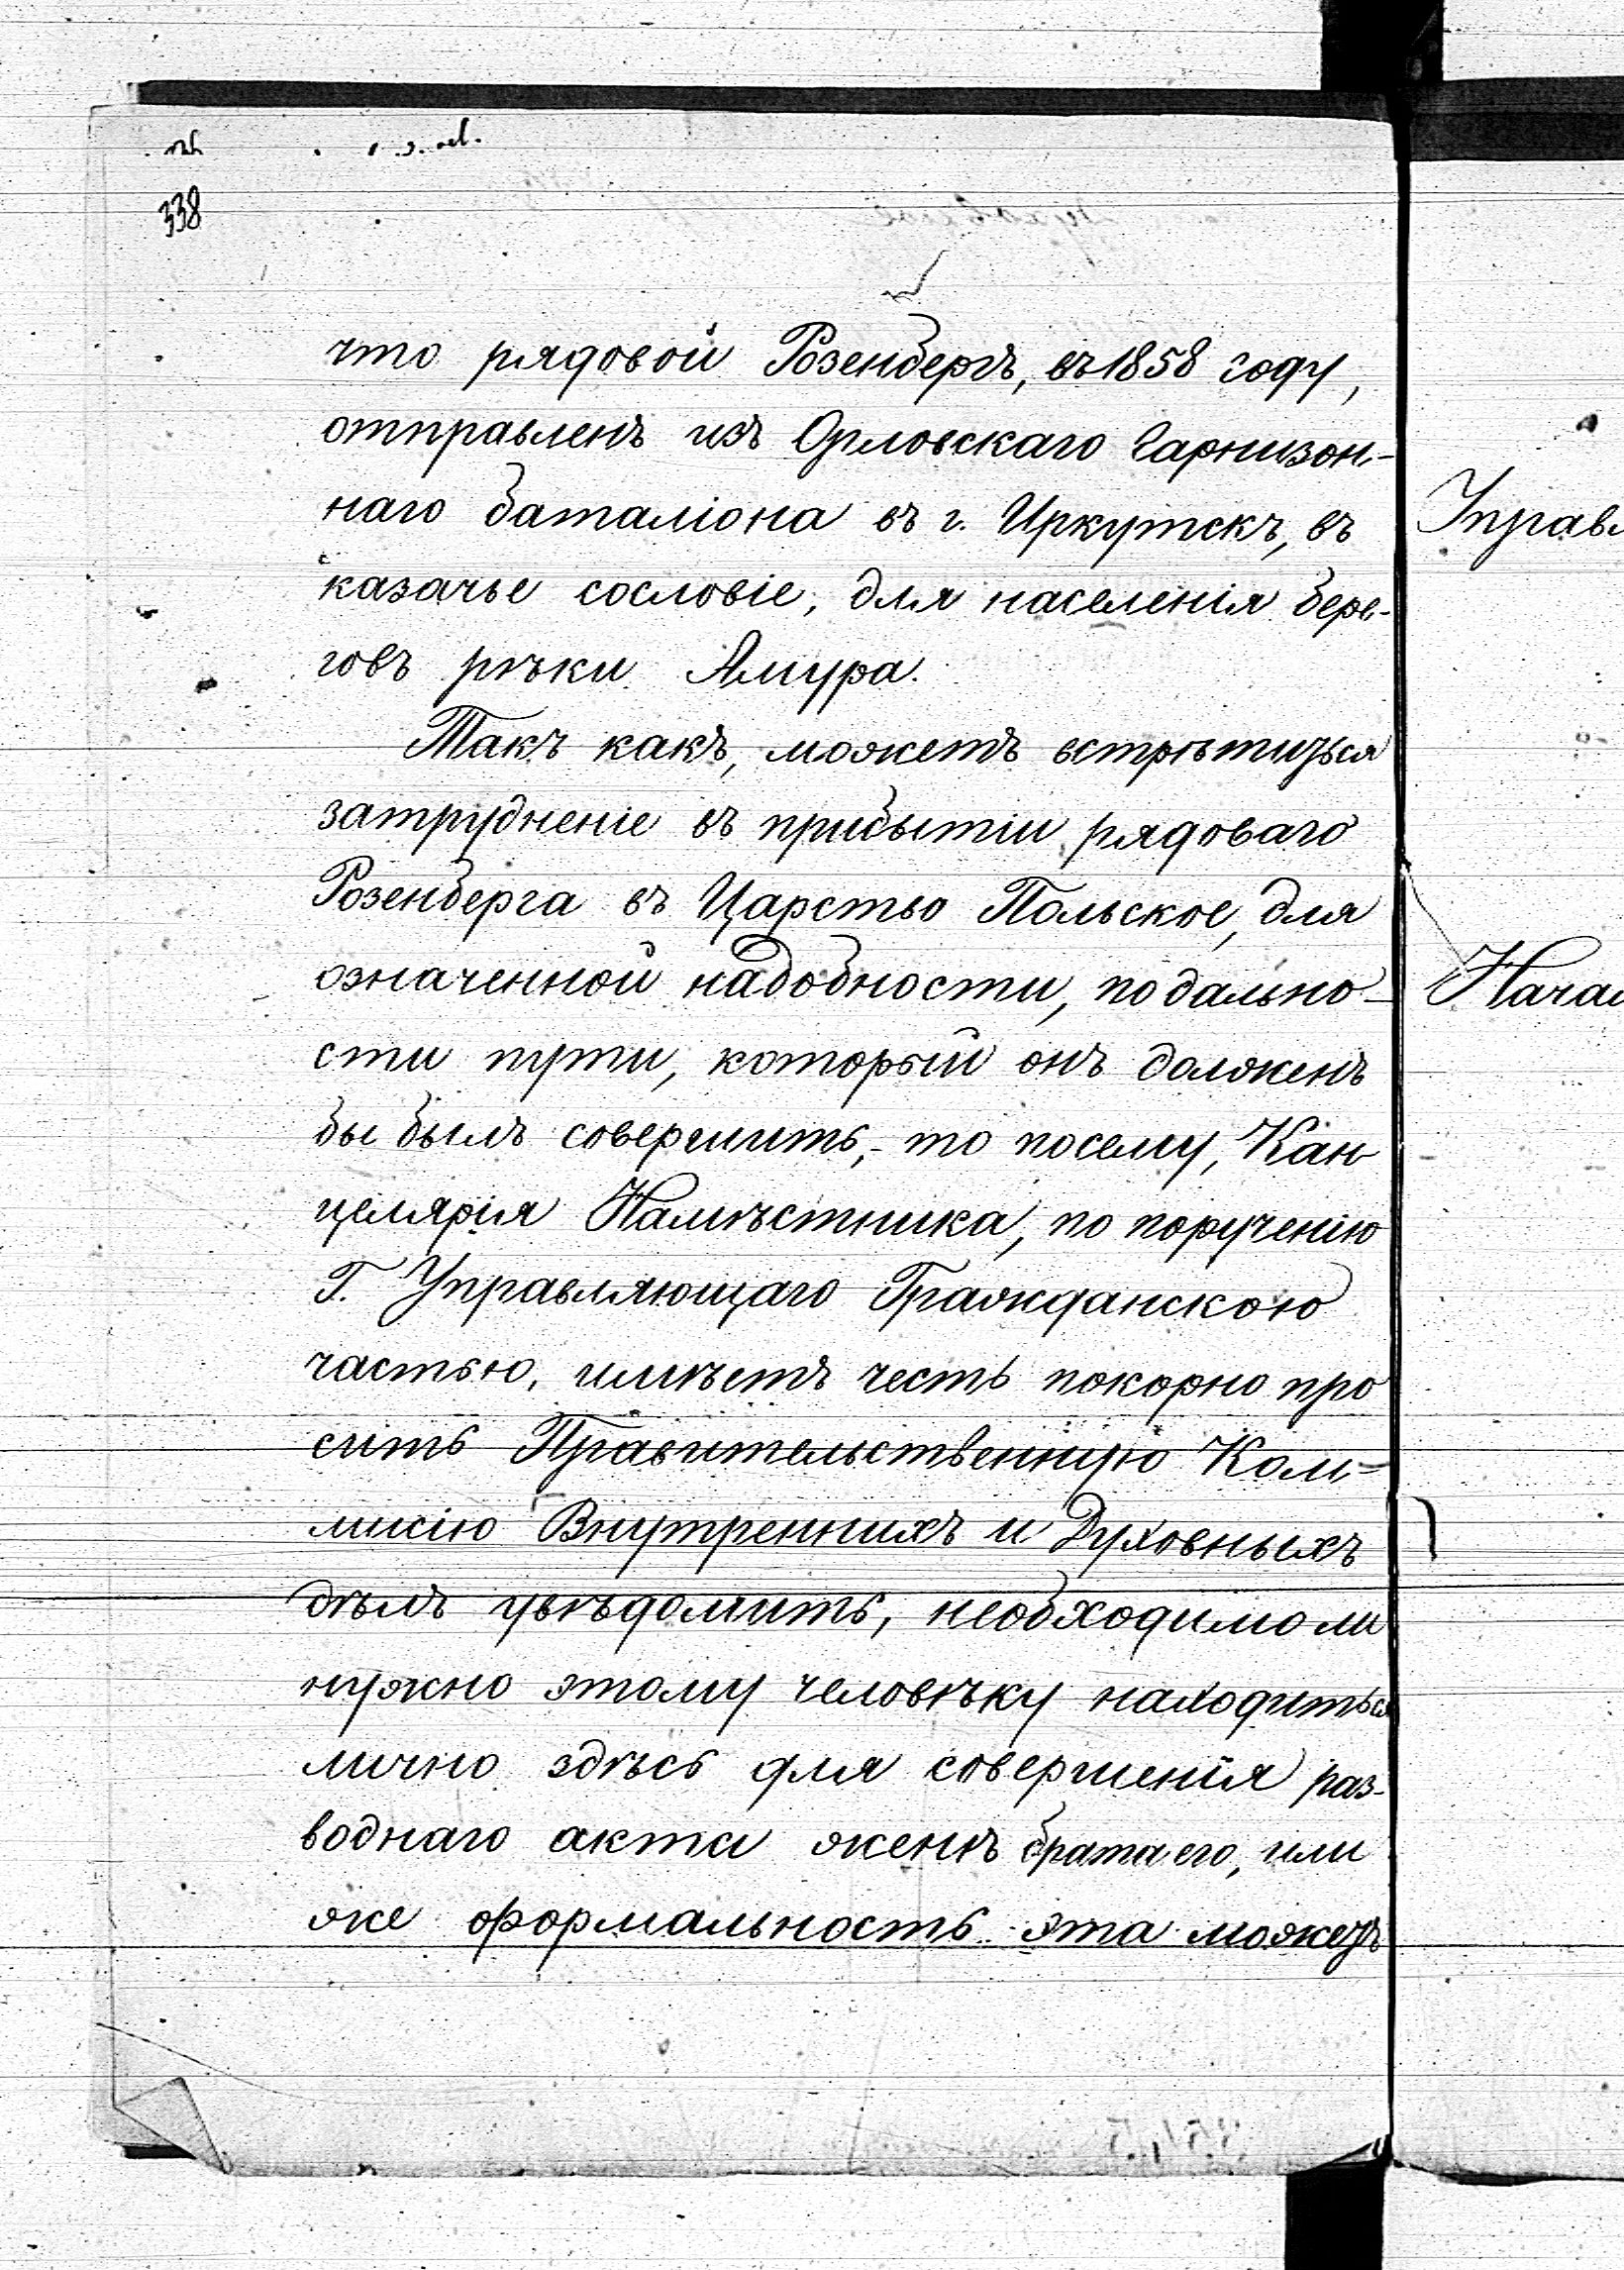 338
что рядовой Розенбергъ, въ 1858 году,
отправленъ изъ Орловскаго Гарнизон-
наго баталіона въ г. Иркутскъ, въ
казачье сословіе, для населенія бере-
говъ рѣки Амура.
Такъ какъ, можетъ встрѣтиться
затрудненіе въ прибытіи рядоваго
Розенберга въ Царство Польское, для
означенной надобности, по дально-
сти пути, который онъ долженъ
бы былъ совершить, - то посему, Кан
целярія Намѣстника, по порученію
Г. Управляющаго Гражданскою
частью, имѣетъ честь покорно про
сить Правительственную Ком-
мисію Внутреннихъ и Духовныхъ
дѣлъ увѣдомить, необходимо ли
нужно этому человѣку находиться
лично здѣсь для совершенія раз-
воднаго акта женѣ брата его, или
же формальность эта можетъ
Управл
Начал